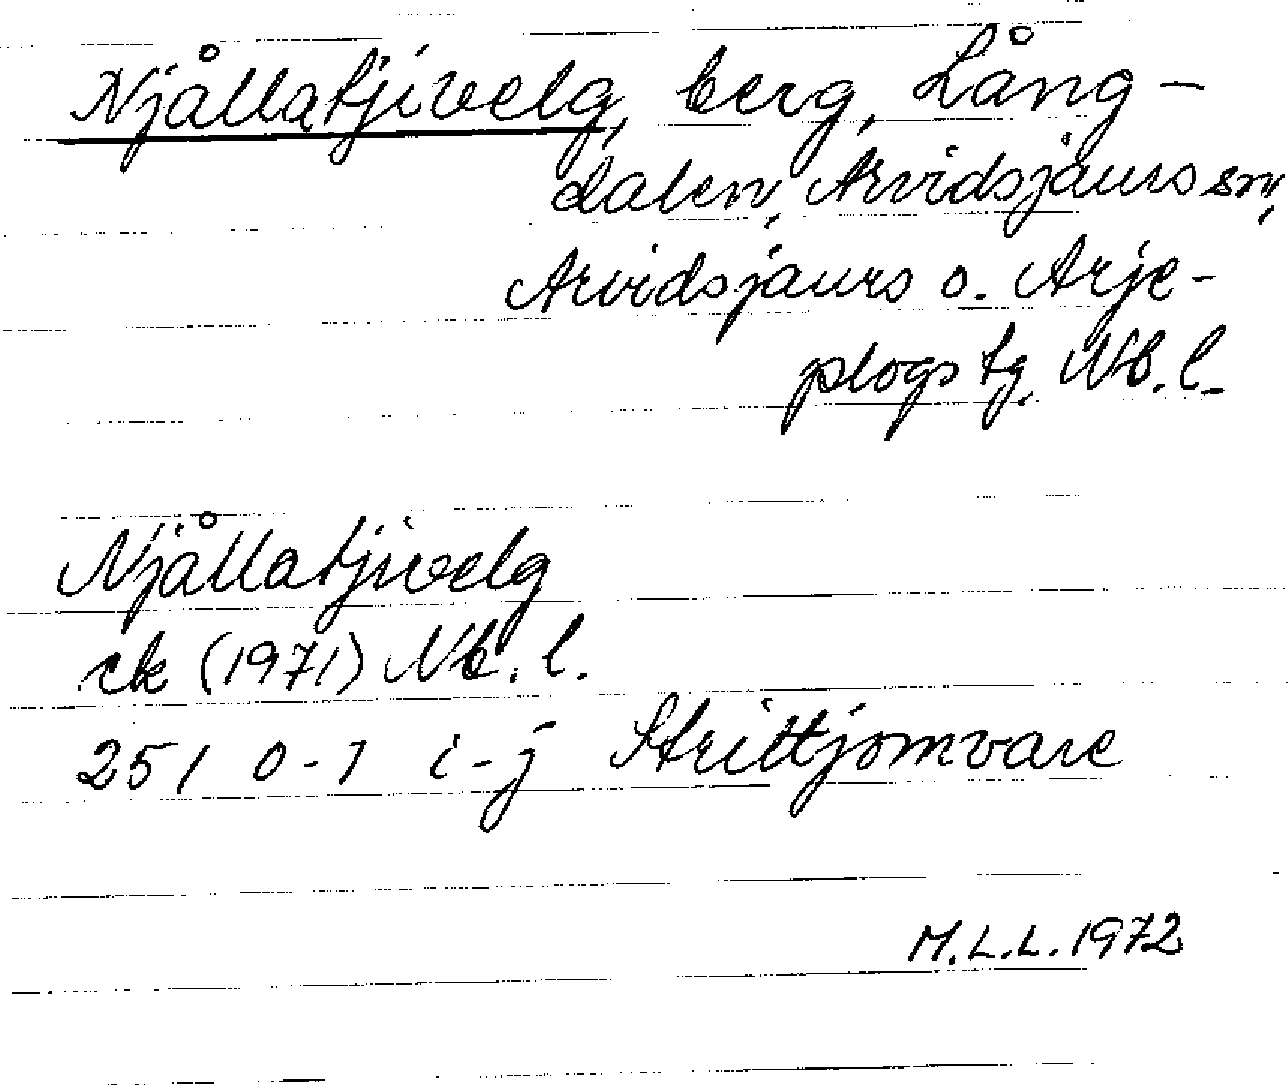 Njållatjivelg, berg, Lång-
dalen, Arvidsjaurs sn,
Arvidsjaurs o. Arje-
plogs tg. Nb. l.
Njållatjivelg
rk (1971) Nb. l.
251 0-1 i-j Strittjomvare
M.L.L. 1972